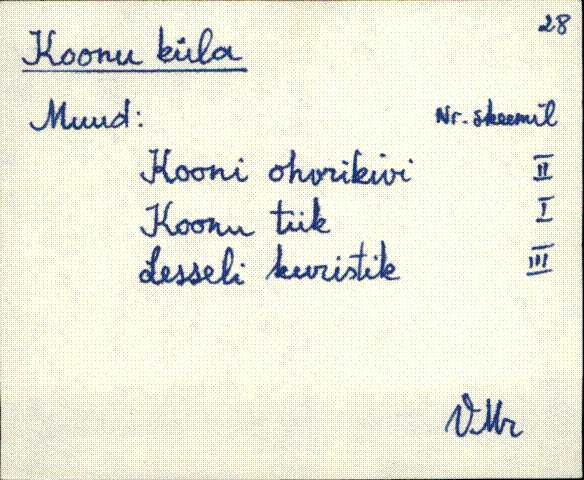 28
Koonu küla
Muud: Nr. skeemil
Kooni ohvrikivi II
Koonu tiik I
Lesseli kuristik III
VMr